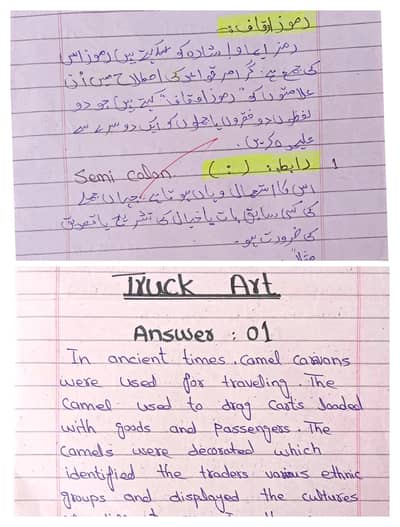 رموز اوقاف:-
رمز ایما و اشارہ کو کہتے ہیں رموز اس
کی جمع ہے۔ گرامر قواعد کی اصطلاح میں اُن
علامتوں کو "رموز اوقاف" کہتے ہیں جو دو
لفظوں دو فقروں یا جملوں کو ایک دوسرے سے
علیحدہ کریں۔
1 رابطہ: ( : ) Semi colon
اس کا استعمال وہاں ہوتا ہے جہاں
کی کسی سابق بات یا خیال کی تشریح یا تصدیق
کی ضرورت ہو۔
مثلاً
Truck Art
Answer : 01
In ancient times, camel caravans
were used for traveling. The
camel used to drag carts loaded
with goods and passengers. The
camels were decorated which
identified the traders various ethnic
groups and displayed the cultures